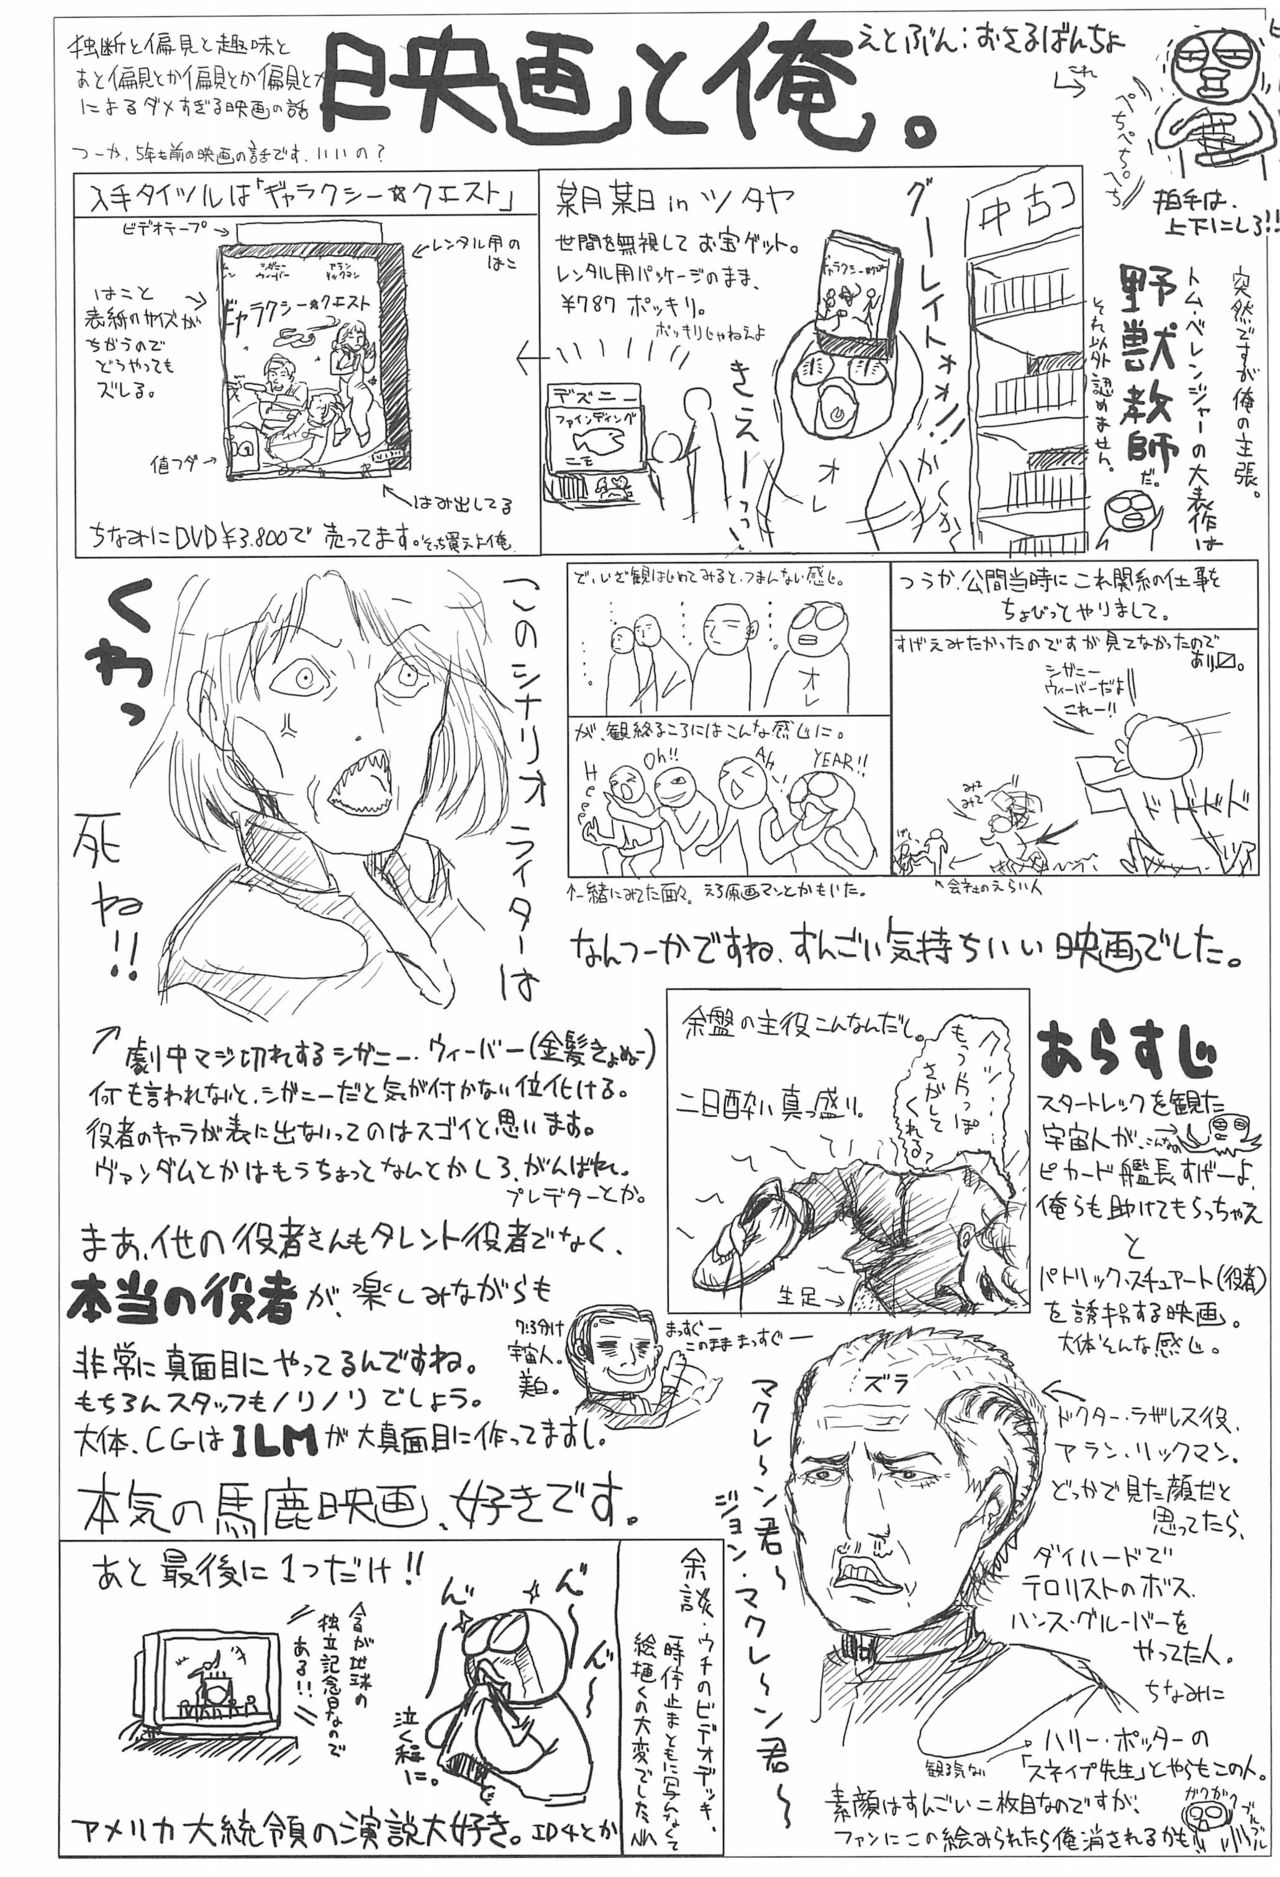 独断と偏見と趣味と
あと偏見とか偏見とか偏見とか
によるダメすぎる映画の話
つーか、5年も前の映画の話です、いいの?
映画と俺。
えとぶん:おさるばんちょ
これ
ぺちぺちぺち
拍手は、
上下にしろ!!
突然ですが俺の主張。
トム・ベレンジャーの大表作は
野獣教師だ。
それ以外認めません。
某月某日inツタヤ
世間を無視してお宝ゲット。
レンタル用パッケージのまま、
¥787ポッキリ。
ポッキリじゃねえよ
グーレイトォォ!!
きえーーっっ!
がくがく
中古コ
ギャラクシークエスト
オレ
デズニー
ファインディング
ニモ
入手タイツルは「ギャラクシー☆クエスト」
ビデオテープ→
レンタル用の
はこ
シガニー
ウィーバー
アラン
リックマン
ギャラクシー☆クエスト
はこと
表紙のサイズが
ちがうので
どうやっても
ズレる。
値フダ→
はみ出してる
ちなみにDVD¥3.800で売ってます。そっち買えよ俺
つうか、公開当時にこれ関係の仕事を
ちょびっとやりまして。
すげえみたかったのですが見てなかったので
あり〼。
シガニー
ウィーバーだよ
これー!!
みて
みて
ドドドド
会社のえらい人
で、いざ観はじめてみると、つまんない感じ。
オレ
が、観終るころにはこんな感じに。
H
Oh!!
AH
YEAR!!
↑一緒にみてた面々。えろ原画マンとかもいた。
なんつーかですね、すんごい気持ちいい映画でした。
くわっ
このシナリオライターは
死ね!!
劇中マジ切れするシガニー・ウィーバー(金髪きょぬー)
何も言われないと、シガニーだと気が付かない位化ける。
役者のキャラが表に出ないってのはスゴイと思います。
ヴァンダムとかはもうちょっとなんとかしろ、がんばれ。
プレデターとか。
まあ、他の役者さんもタレント役者でなく、
本当の役者が、楽しみながらも
非常に真面目にやってるんですね。
もちろんスタッフもノリノリでしょう。
大体、CGはILMが大真面目に作ってますし。
本気の馬鹿映画、好きです。
7:3分け
宇宙人。
美白。
まっすぐー
このまままっすぐー
余盤の主役こんなんだし。
二日酔い真っ盛り。
クソッ・・・もうドタっぽさがしてくれる?
生足→
あらすじ
スタートレックを観た
宇宙人が、こんなの
ピカード艦長すげーよ、
俺らも助けてもらっちゃえ
と
パトリック・スチュアート(役者)
を誘拐する映画。
大体そんな感じ。
ズラ
マクレ〜ン君〜
ジョン・マクレ〜ン君〜
ドクター・ラザレス役、
アラン・リックマン。
どっかで見た顔だと
思ってたら、
ダイハードで
テロリストのボス、
ハンス・グルーバーを
やってた人。
ちなみに
ハリー・ポッターの
「スネイプ先生」とやらもこの人。
観る気ない
素顔はすんごい二枚目なのですが、
ファンにこの絵みられたら俺消されるかも
ガクガク
ブルブル
あと最後に1つだけ!!
今日が地球の
独立記念日なので
ある!!
んん〜
泣く程に。
アメリカ大統領の演説大好き。ID4とか
余談・ウチのビデオデッキ、
一時停止まともに写んなくて
絵描くの大変でした。